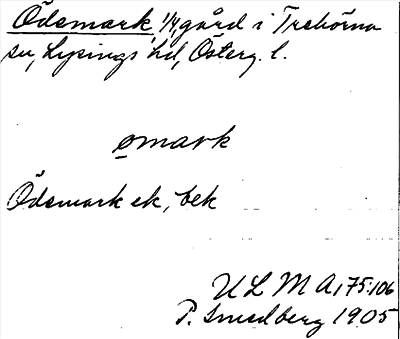 Ödsmark, 1/4 gård i Trehörna
sn, Lysings hd, Österg. l.
ømark
Ödsmark ek, bek
ULMA, 175:106
P. Smedberg 1905